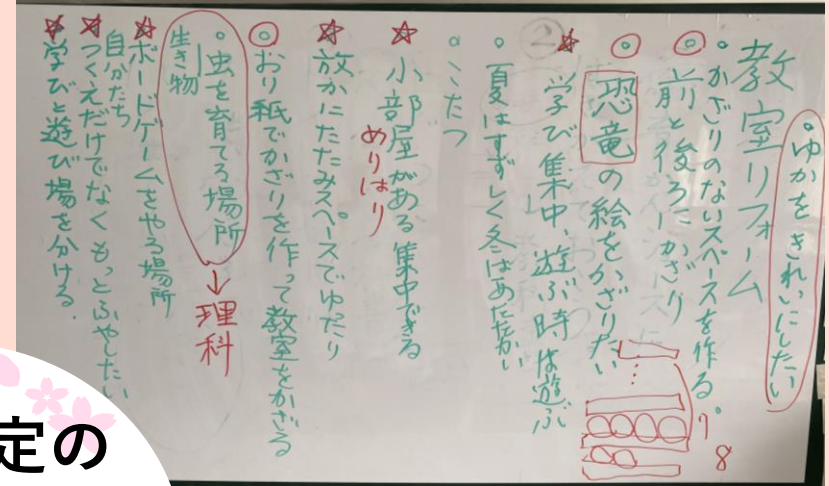 。ゆかをきれいにしたい
教室リフォーム
。かざりのないスペースを作る。
◎前と後ろにかざり
◎恐竜の絵をかざりたい
☆学び集中、遊ぶ時は遊ぶ
②
。夏はすずしく冬はあたたかい
。こたつ
☆小部屋がある集中できる
めりはり
☆放かにたたみスペースでゆったり
◎おり紙でかざりを作って教室をかざる
。虫を育てる場所→理科
生き物
☆ボードゲームをやる場所
自分たち
☆つくえだけでなくもっとふやしたい
☆学びと遊び場を分ける.
7
8
定の